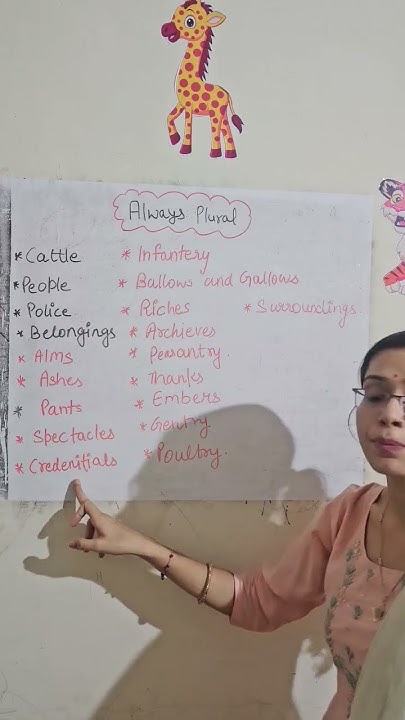 Always Plural
* Cattle
* People
* Police
* Belongings
* Alms
* Ashes
* Pants
* Spectacles
* Credenitials
* Infantery
* Ballows and Gallows
* Riches
* Archieves
* Peasantry.
* Thanks
* Embers
* Gentry
* Poultry.
* Surroundings.